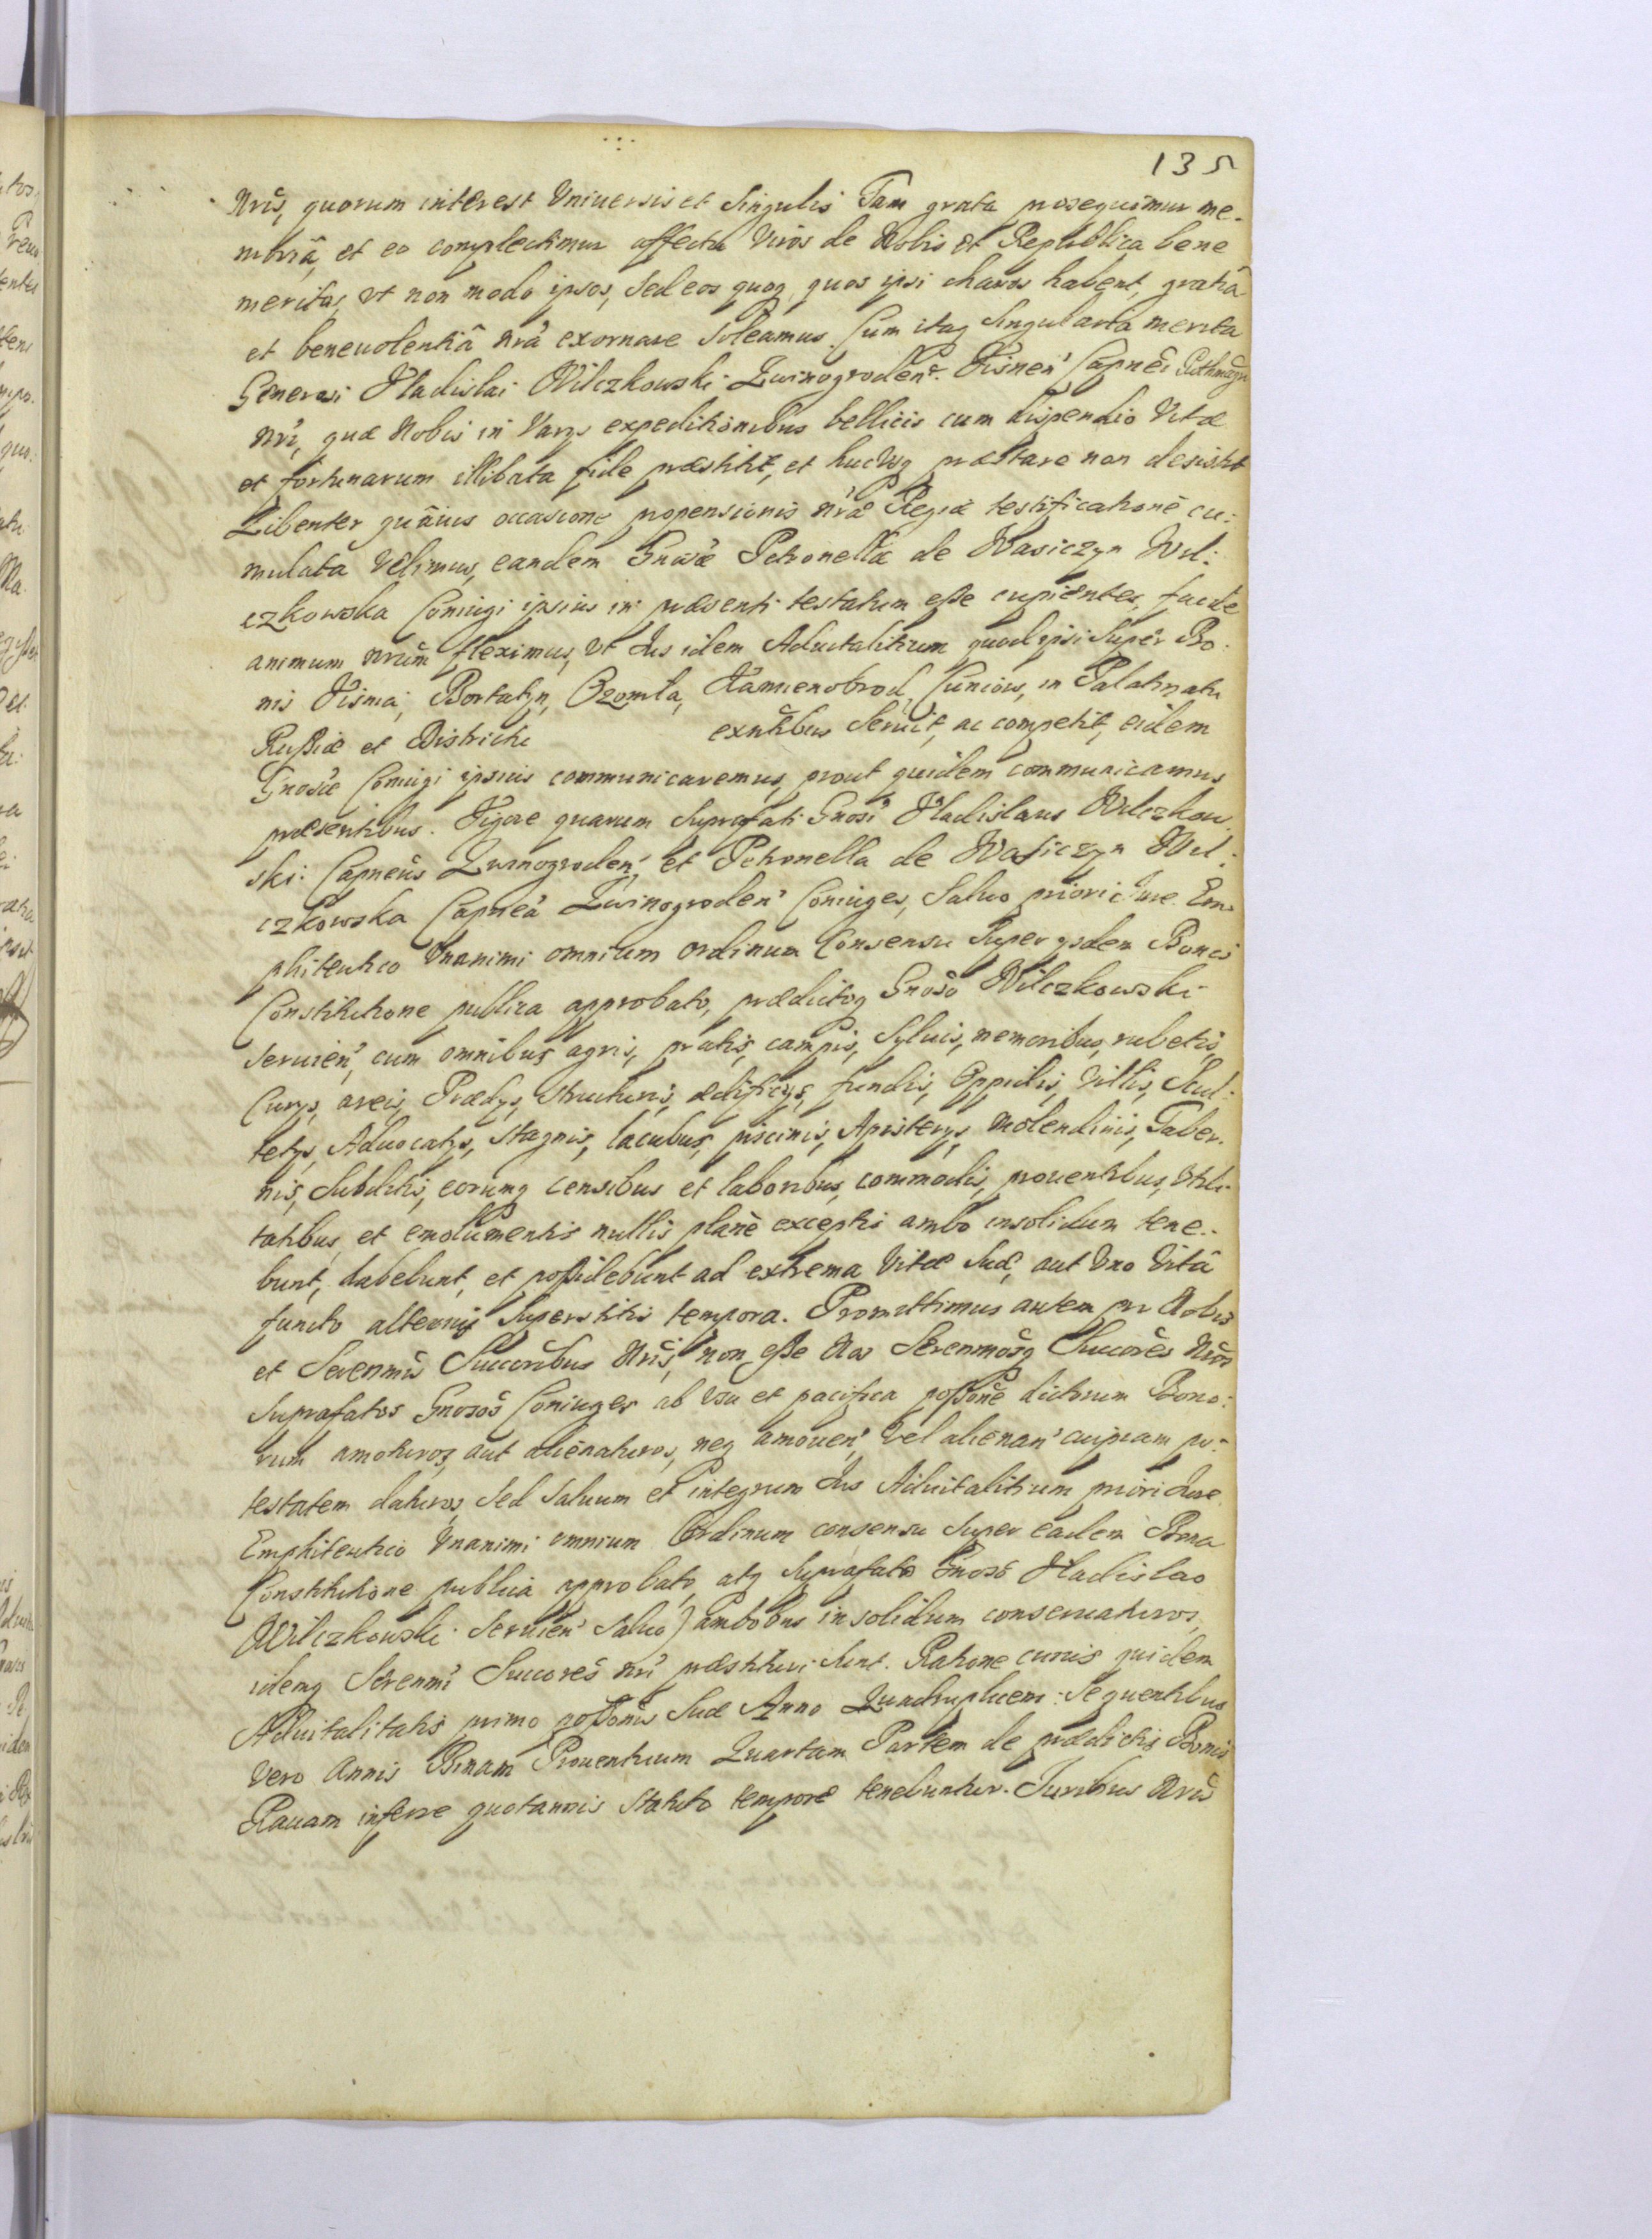 135
Nris, quorum interest Vniuersis et Singulis Tam grata prosequimur me-
moriâ, et eo complectimur affectu viros de Nobis et Republica bene
meritos, vt non modo ipsos, sed eos quoq, quos ipsi charos habent, gratiâ
et beneuolentiâ nrâ exornare soleamus. Cum itaq Singularia merita
Generosi Vladislai Wilczkowski Zwinogroden. Visnen Capnei
Nri, quæ Nobis in Varys expeditionibus bellicis cum dispendio Vitæ
et fortunarum illibata fide præstitit, et hucvsq præstare non desistit
Libenter quâuis occasione propensionis nræ Regiæ testificatione cu:
mulata Velimus, eandem Gnosæ Petronellæ de Wasiczyn Wil:
czkowska Coniugi ipsius in præsenti testatum esse cupientes, facile
animum nrum fleximus, vt Ius idem Aduitalitium quod ipsi super Bo-
nis Visnia, Bortatyn, Czomla, Kamienobrod, Cuniow, in Palatinatu
Russiæ et Districtu exntibus seruit, ac competit, eidem
Gnosæ Coniugi ipsius communicaremus, prout quidem communicamus
præsentibus. Vigore quarum suprafati Gnosi Vladislaus Wilczkow
ski: Capneus Zwinogroden, et Petronella de Wasiczyn Wil:
czkowska Capnea Zwinogroden Coniuges, Saluo priori Iure Em-
phiteutico Vnanimi omnium ordinum Consensu super ysdem Bonis
Constitutione publica approbato, prædictoq Gnoso Wilczkowski
seruien, cum omnibus agris, pratis, campis, syluis, nemoribus, rubetis,
Curys, areis, Prædys, structuris, ædificys, fundis, Oppidis, Villis, Scul:
tetys, Aduocatys, stagnis, lacubus, piscinis, Apisterys, Molendinis, Taber.
nis, Subditis, eorumq censibus et laboribus, commodis, prouentibus, Vtili-
tatibus, et emolumentis nullis planè exceptis ambo insolidum tene-
bunt, habebunt, et possidebunt ad extrema Vitæ suæ, aut Vno Vitâ
functo alterius superstitis tempora. Promittimus autem pro Nobis
et Serenmis Succoribus Nris, non esse Nos Serenmosq Succores Nros
suprafatos Gnosos Coniuges ab vsu et pacifica possone dictorum Bono:
rum amoturos, aut alienaturos, neq amouen, vel alienan cuipiam po:
testatem daturos, sed saluum et integrum Ius Aduitalitium priori Iure
Emphiteutico Vnanimi omnium Ordinum consensu super eadem Bona
Constitutione publica approbato, atq suprafato Gnoso Vladislao
Wilczkowski seruien saluo) ambobus insolidum conseruaturos,
idemq Serenmi Succores nri præstituri sunt. Ratione cuius quidem
Aduitalitatis primo possonis suæ Anno Quadruplicem: Sequentibus
vero Annis Binam Prouentuum Quartam Partem de prædictis Bonis
Rauam inferre quotannis statuto tempore tenebuntur. Iuribus Nris